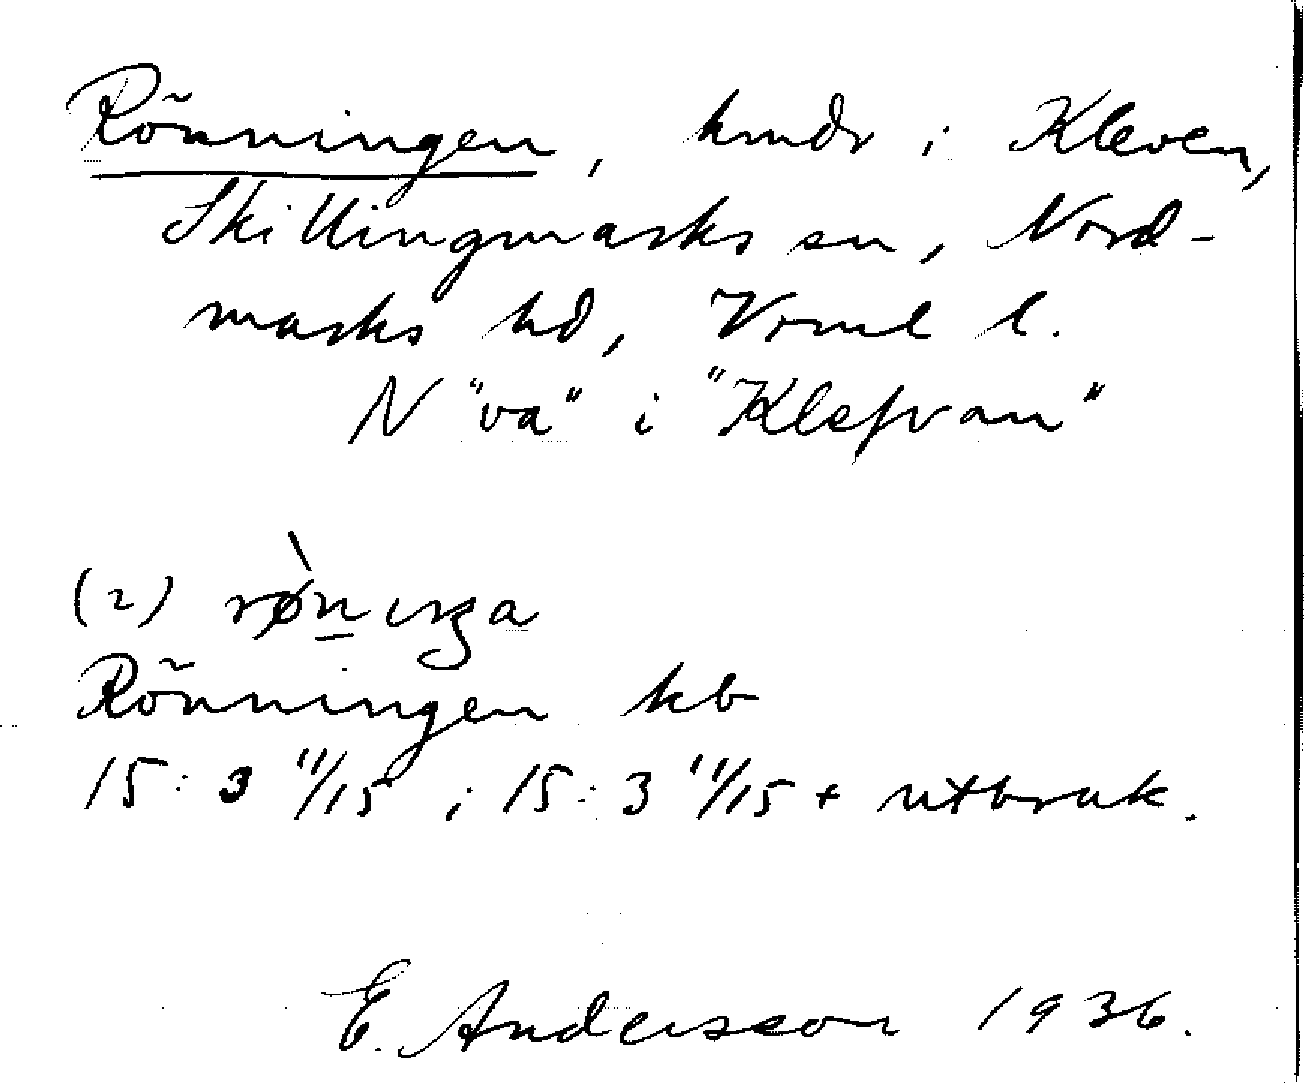 Rönningen, hmdr i Kleven,
Skillingmarks sn, Nord-
marks hd, Vrml l.
N "va" i "Klefvan"
(2) rø̀n̲ıŋa
Rönningen kb
15:3 11/15 i 15:3 11/15 + utbruk.
E. Andersson 1936.